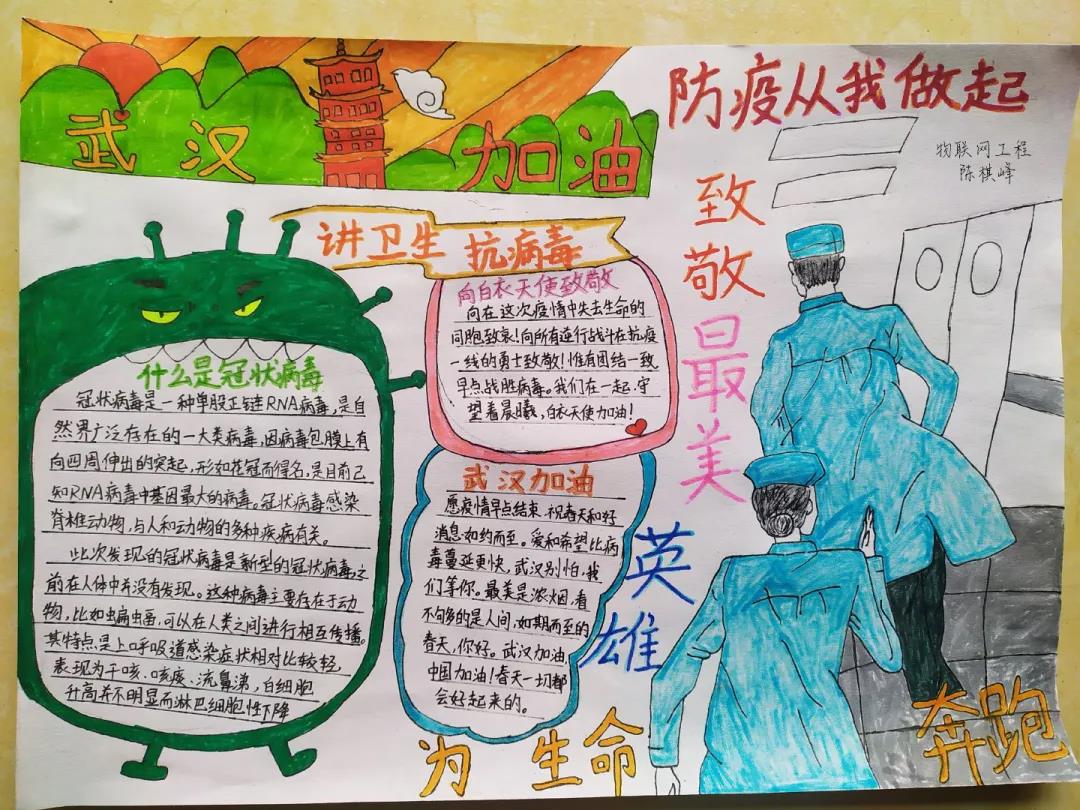 武汉 加油
防疫从我做起
物联网工程
陈棋峰
讲卫生 抗病毒
什么是冠状病毒
冠状病毒是一种单股正链RNA病毒,是自
然界广泛存在的一大类病毒,因病毒包膜上有
向四周伸出的突起,形如花冠而得名,是目前已
知RNA病毒中基因最大的病毒。冠状病毒感染
脊椎动物,与人和动物的多种疾病有关。
此次发现的冠状病毒是新型的冠状病毒之
前在人体中并没有发现。这种病毒主要存在于动
物,比如蝙蝠,可以在人类之间进行相互传播。
其特点,是上呼吸道感染症状相对比较轻
表现为干咳、咳痰、流鼻涕,白细胞
升高并不明显而淋巴细胞性下降
向白衣天使致敬
向在这次疫情中失去生命的
同胞致哀!向所有逆行战斗在抗疫
一线的勇士致敬!惟有团结一致
早点战胜病毒。我们在一起.守
望着晨曦,白衣天使加油!
武汉加油
愿疫情早点结束.祝春天和好
消息如约而至。爱和希望比病
毒蔓延更快。武汉别怕,我
们等你。最美是浓烟,看
不够的是人间,如期而至的
春天,你好。武汉加油
中国加油!春天一切都
会好起来的。
致敬最美英雄
为生命奔跑